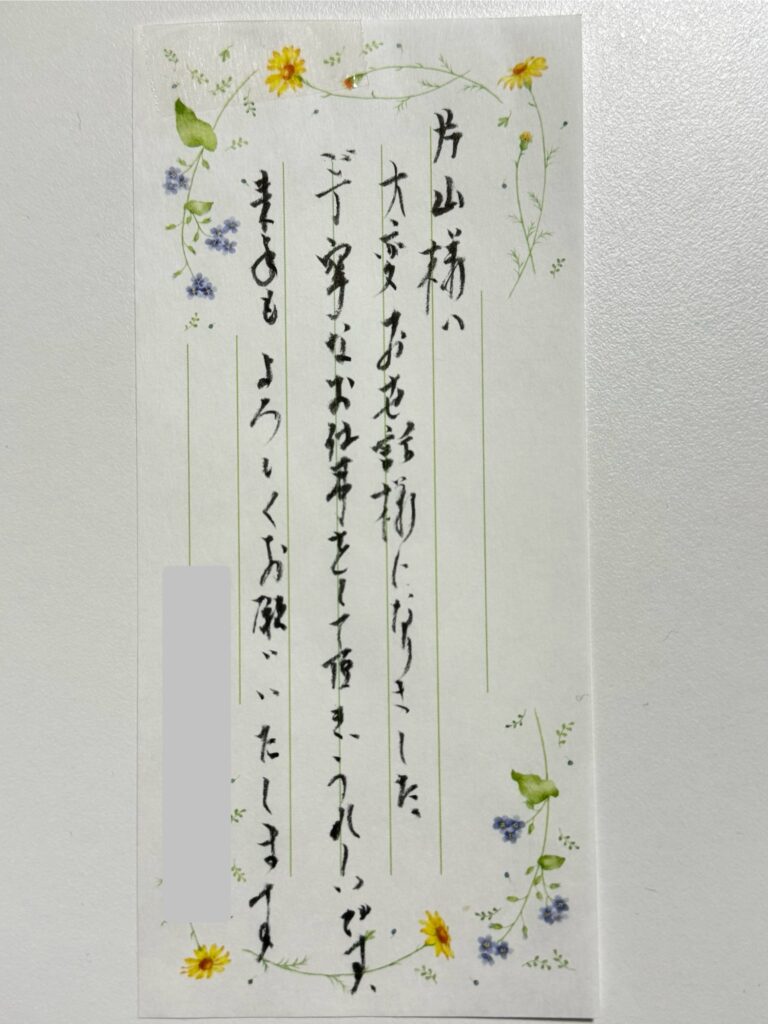 片山様へ
大変お世話様になりました。
ご丁寧なお仕事をして頂き、うれしいです。
来年もよろしくお願いいたします